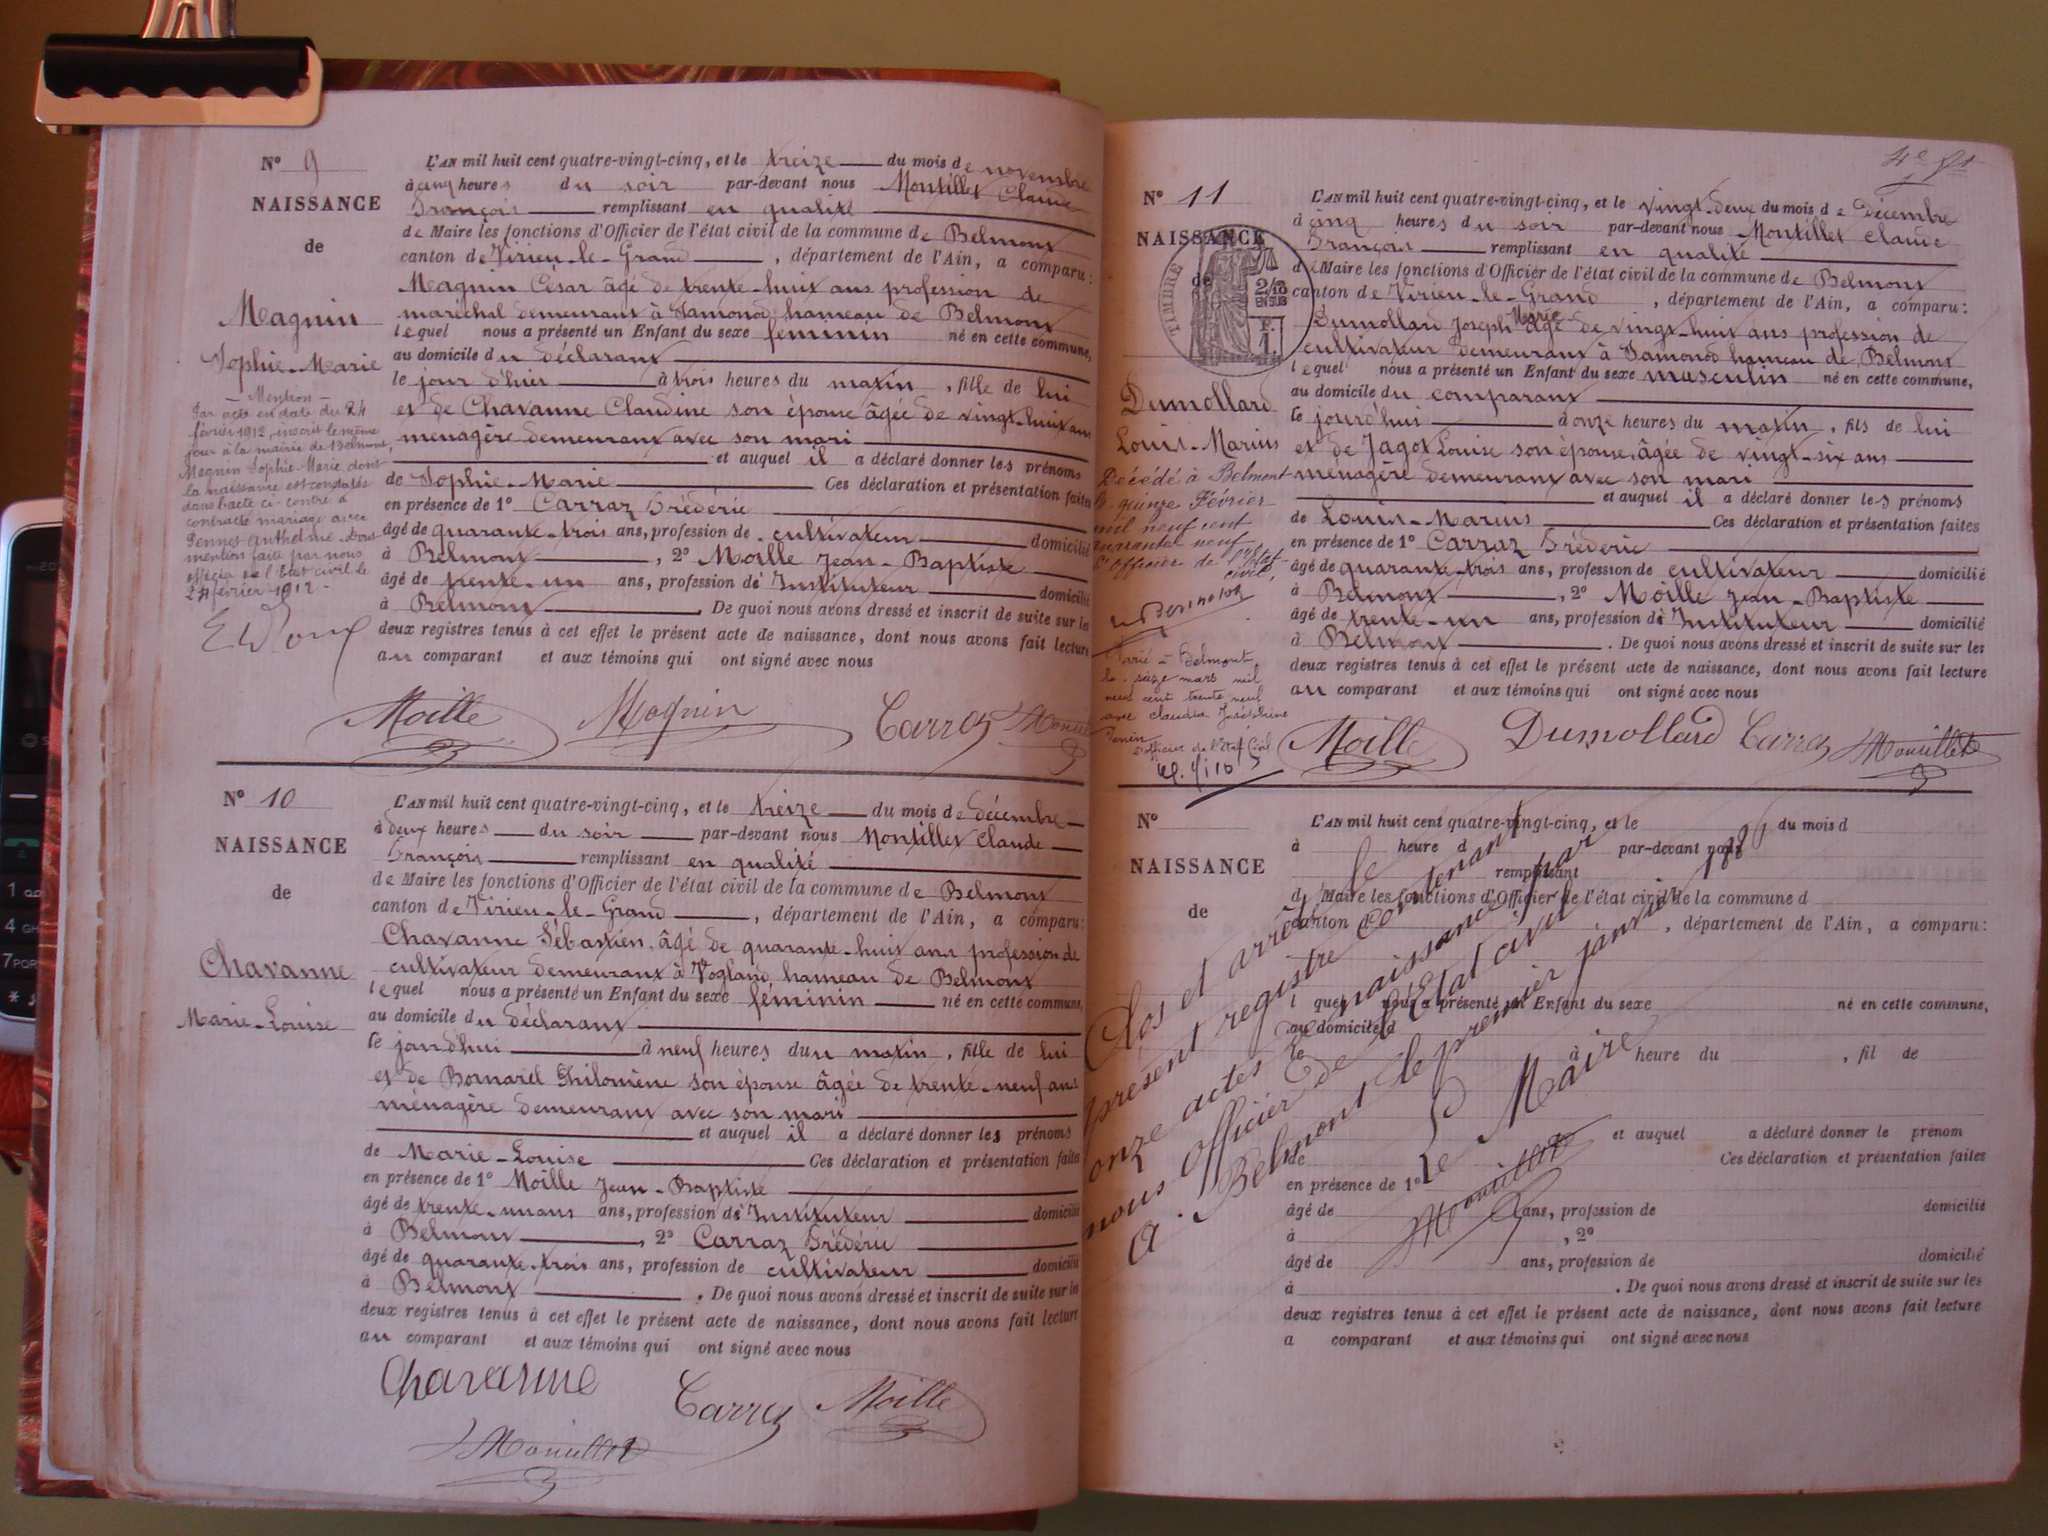 N° 9
NAISSANCE
de
Magnin
Sophie-Marie
— Mention —
Par acte en date du 24
février 1912, inscrit le même
jour à la mairie de Belmont,
Magnin Sophie Marie dont
la naissance est constatée
dans l'acte ci-contre a
contracté mariage avec
Pennet Anthelme. Dont
mention faite par nous
officier de l'Etat civil le
24 février 1912 -
L'AN mil huit cent quatre-vingt-cinq, et le treize du mois de novembre
à cinq heures du soir par-devant nous Montillet Claude
François remplissant en qualité
de Maire les fonctions d'Officier de l'état civil de la commune de Belmont
canton de Virieu-le-Grand, département de l'Ain, a comparu:
Magnin César âgé de trente-huit ans profession de
maréchal demeurant à Samonod hameau de Belmont
lequel nous a présenté un Enfant du sexe féminin né en cette commune,
au domicile du déclarant
le jour d'hier à trois heures du matin, fille de lui
et de Chavanne Claudine son épouse âgée de vingt-huit ans
ménagère demeurant avec son mari
et auquel il a déclaré donner les prénoms
de Sophie-Marie Ces déclaration et présentation faites
en présence de 1° Carraz Frédéric
âgé de quarante-trois ans, profession de cultivateur domicilié
à Belmont, 2° Moille Jean-Baptiste
âgé de trente-un ans, profession d' Instituteur domicilié
à Belmont. De quoi nous avons dressé et inscrit de suite sur les
deux registres tenus à cet effet le présent acte de naissance, dont nous avons fait lecture
au comparant et aux témoins qui ont signé avec nous
Moille Magnin Carraz Montillet
N° 10
NAISSANCE
de
Chavanne
Marie-Louise
L'AN mil huit cent quatre-vingt-cinq, et le treize du mois de décembre
à deux heures du soir par-devant nous Montillet Claude
François remplissant en qualité
de Maire les fonctions d'Officier de l'état civil de la commune de Belmont
canton de Virieu-le-Grand, département de l'Ain, a comparu:
Chavanne Sébastien, âgé de quarante-huit ans profession de
cultivateur demeurant à Vogland hameau de Belmont
lequel nous a présenté un Enfant du sexe féminin né en cette commune,
au domicile du déclarant
le jourd'hui à neuf heures du matin, fille de lui
et de Bornarel Philomène son épouse âgée de trente-neuf ans
ménagère demeurant avec son mari
et auquel il a déclaré donner les prénoms
de Marie-Louise Ces déclaration et présentation faites
en présence de 1° Moille Jean-Baptiste
âgé de trente-un ans ans, profession d' Instituteur domicilié
à Belmont, 2° Carraz Frédéric
âgé de quarante-trois ans, profession de cultivateur domicilié
à Belmont. De quoi nous avons dressé et inscrit de suite sur les
deux registres tenus à cet effet le présent acte de naissance, dont nous avons fait lecture
au comparant et aux témoins qui ont signé avec nous
Chavanne Carraz Moille
Montillet
4e ft
N° 11
NAISSANCE
de
TIMBRE
Dumollard
Louis-Marius
Décédé à Belmont
le quinze Février
mil neuf cent
quarante neuf
L'Officier de l'Etat
civil,
Marié à Belmont
le seize mars mil
neuf cent trente neuf
avec Claudia Joséphine
L'officier de l'état Civil
L'AN mil huit cent quatre-vingt-cinq, et le vingt-deux du mois de décembre
à cinq heures du soir par-devant nous Montillet Claude
François remplissant en qualité
de Maire les fonctions d'Officier de l'état civil de la commune de Belmont
canton de Virieu-le-Grand, département de l'Ain, a comparu:
Dumollard Joseph Marie âgé de vingt-huit ans profession de
cultivateur demeurant à Samonod hameau de Belmont
lequel nous a présenté un Enfant du sexe masculin né en cette commune,
au domicile du comparant
le jourd'hui à onze heures du matin, fils de lui
et de Jagot Louise son épouse, âgée de vingt-six ans
ménagère demeurant avec son mari
et auquel il a déclaré donner les prénoms
de Louis-Marius Ces déclaration et présentation faites
en présence de 1° Carraz Frédéric
âgé de quarante-trois ans, profession de cultivateur domicilié
à Belmont, 2° Moille Jean-Baptiste
âgé de trente-un ans, profession d' Instituteur domicilié
à Belmont. De quoi nous avons dressé et inscrit de suite sur les
deux registres tenus à cet effet le présent acte de naissance, dont nous avons fait lecture
au comparant et aux témoins qui ont signé avec nous
Moille Dumollard Carraz Montillet
N°
NAISSANCE
de
L'AN mil huit cent quatre-vingt-cinq, et le du mois d
à heure d par-devant nous
remplissant
d Maire les fonctions d'Officier de l'état civil de la commune d
canton d, département de l'Ain, a comparu:
l quel nous a présenté un Enfant du sexe né en cette commune,
au domicile d
le à heure du, fil de
et auquel a déclaré donner le prénom
de Ces déclaration et présentation faites
en présence de 1°
âgé de ans, profession de domicilié
à, 2°
âgé de ans, profession de domicilié
à. De quoi nous avons dressé et inscrit de suite sur les
deux registres tenus à cet effet le présent acte de naissance, dont nous avons fait lecture
a comparant et aux témoins qui ont signé avec nous
Clos et arrêté le
présent registre contenant
onze actes de naissance par
nous officier de l'Etat civil
A Belmont le premier janvier 1886
Le Maire
Montillet